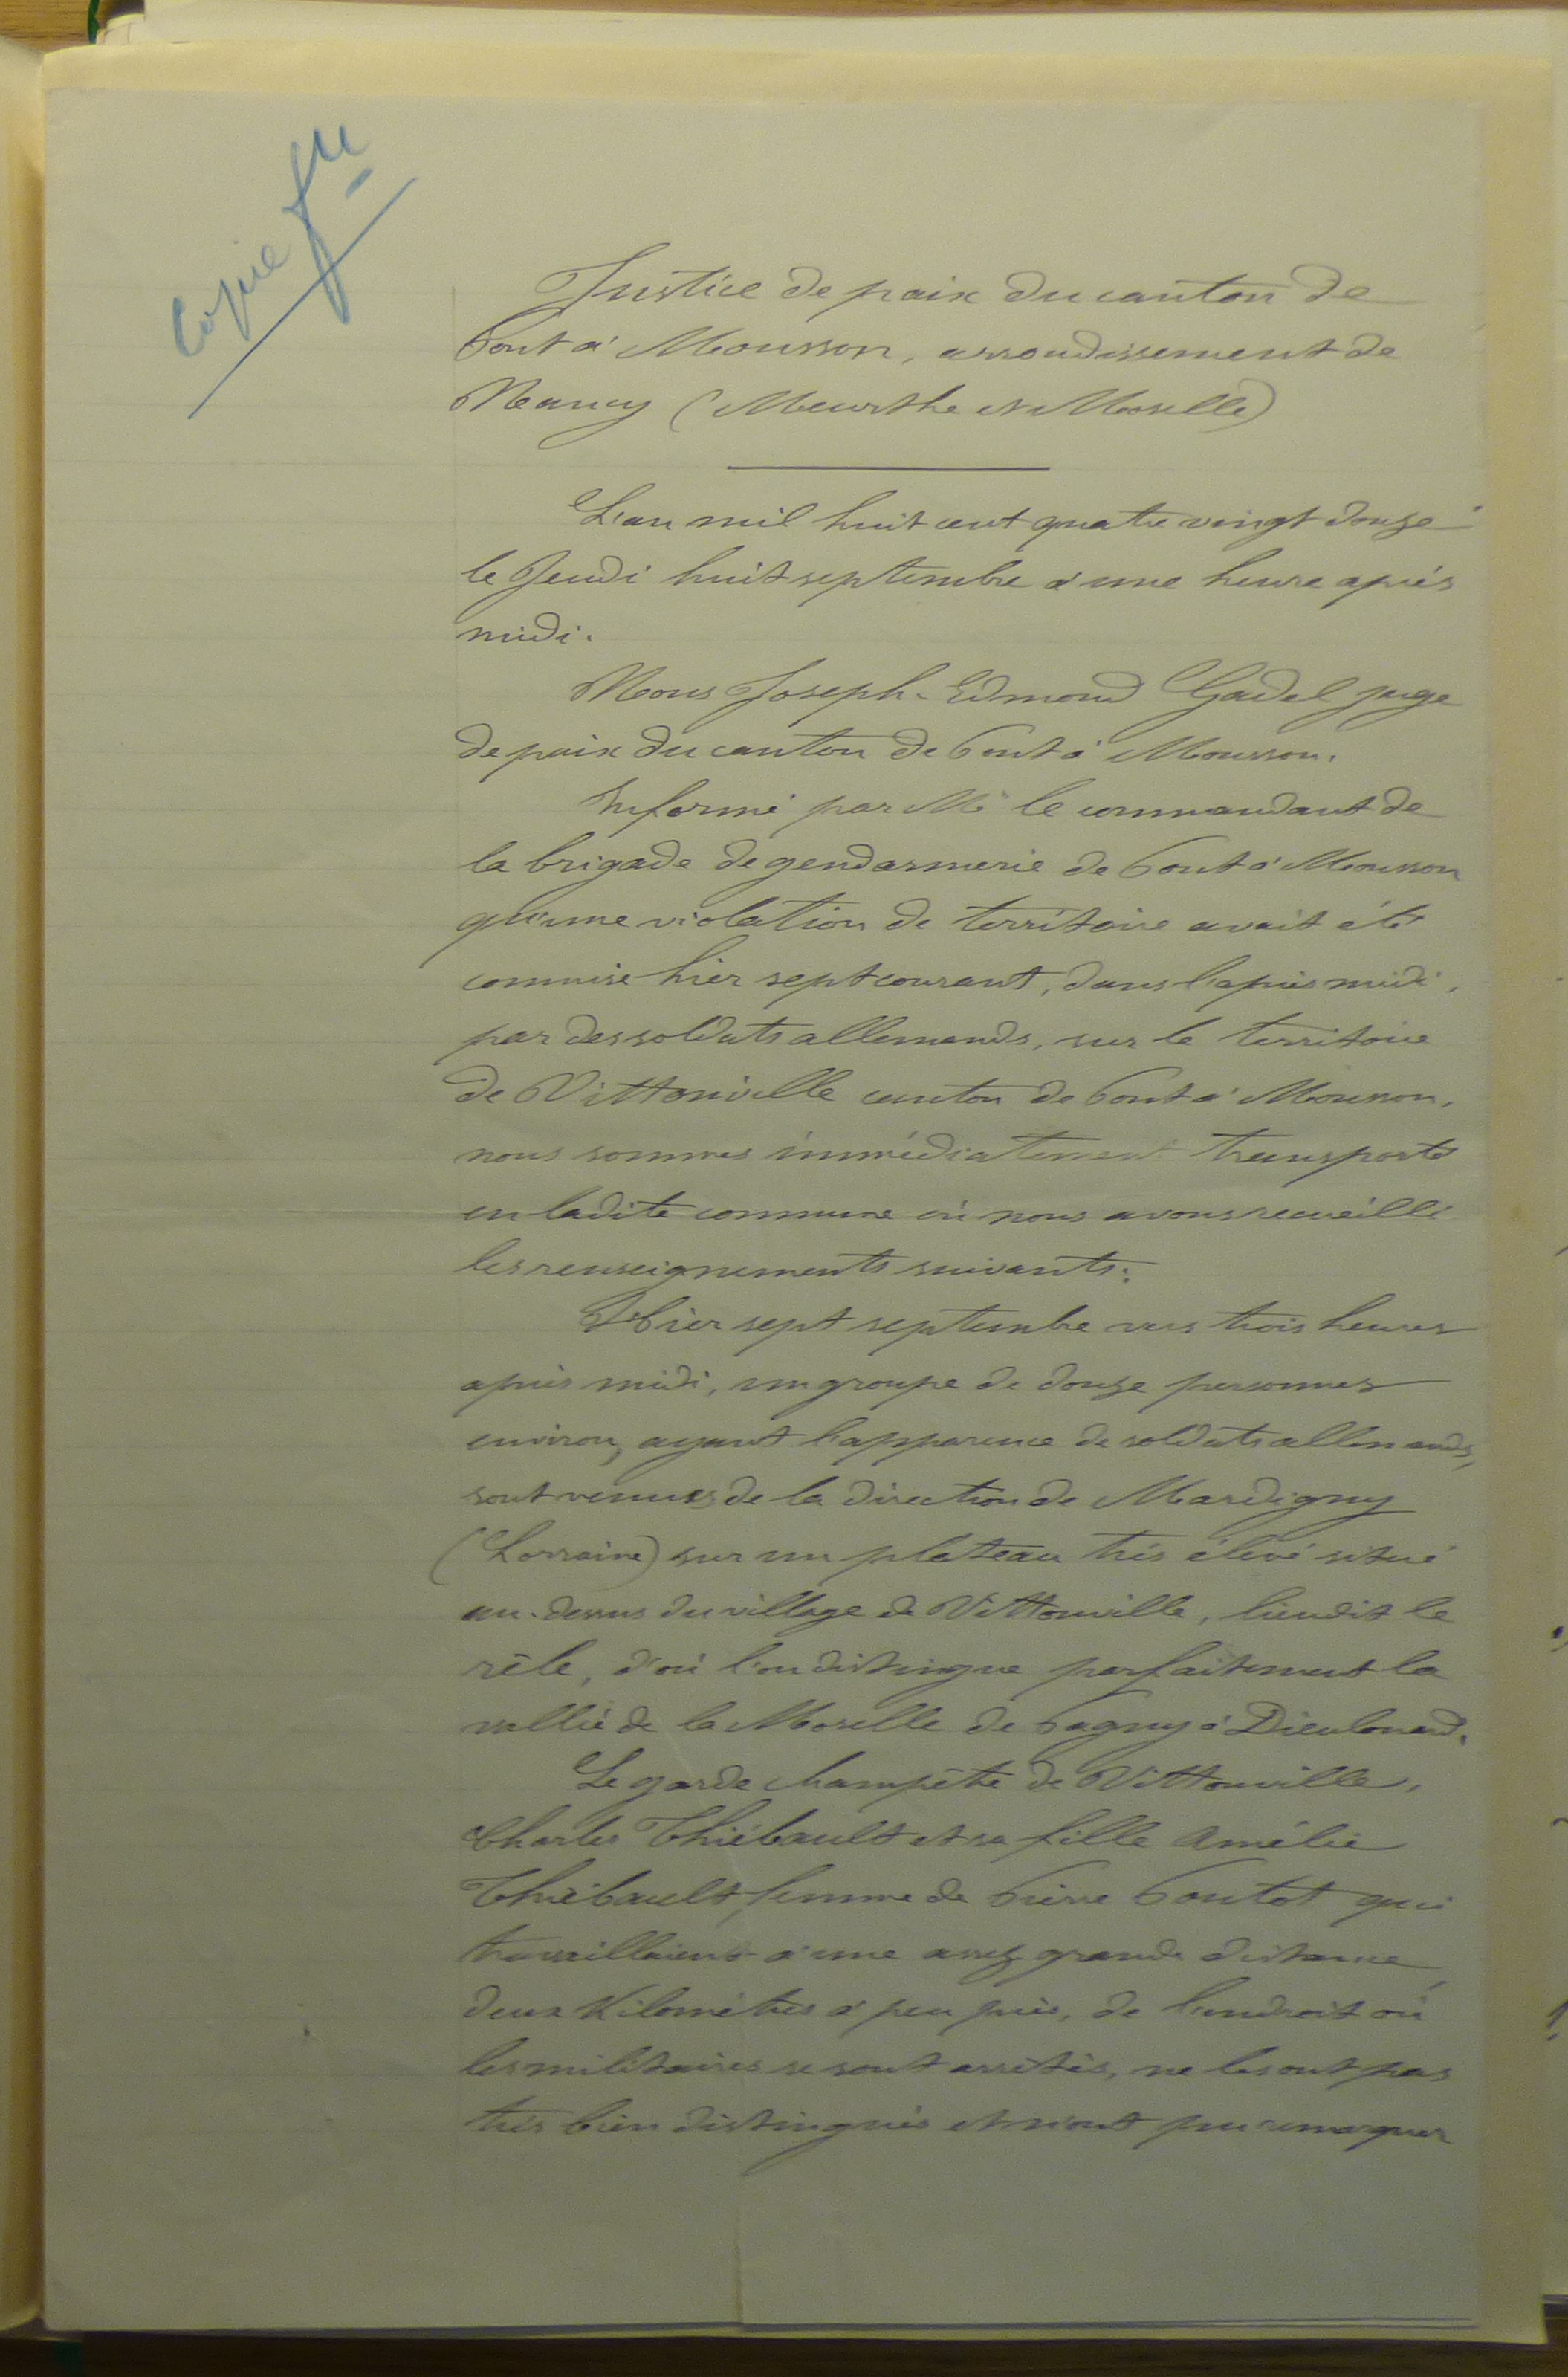 Copie
Justice de paix du canton de
Pont à Mousson, arrondissement de
Nancy (Meurthe et Moselle)
L'an mil huit cent quatre vingt douze
le Jeudi huit septembre à une heure après
midi.
Nous Joseph-Edmond Gadel juge
de paix du canton de Pont à Mousson.
Informé par Mr le commandant de
la brigade de gendarmerie de Pont à Mousson
qu'une violation de territoire avait été
commise hier sept courant, dans l'après midi,
par des soldats allemands, sur le territoire
de Vittonville canton de Pont à Mousson,
nous sommes immédiatement transporté
en ladite commune où nous avons recueilli
les renseignements suivants:
Hier sept septembre vers trois heures
après midi, un groupe de douze personnes
environ, ayant l'apparence de soldats allemands,
sont venues de la direction de Mardigny
(Lorraine) sur un plateau très élevé situé
au-dessus du village de Vittonville, lieudit le
rèle, d'où l'on distingue parfaitement la
vallée de la Moselle de Pagny à Dieulouard.
Le garde champêtre de Vittonville,
Charles Thiébault et sa fille Amélie
Thiébault, femme de Pierre Poutot qui
travaillaient à une assez grande distance,
deux Kilomètres à peu près, de l'endroit où
les militaires se sont arrêtés, ne les ont pas
très bien distingués et n'ont pu remarquer